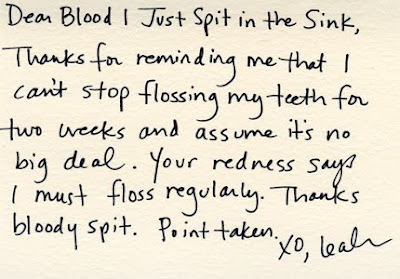 Dear Blood I Just Spit in the Sink,
Thanks for reminding me that I
can't stop flossing my teeth for
two weeks and assume it's no
big deal. Your redness says
I must floss regularly. Thanks
bloody spit. Point taken.
XO, Leah